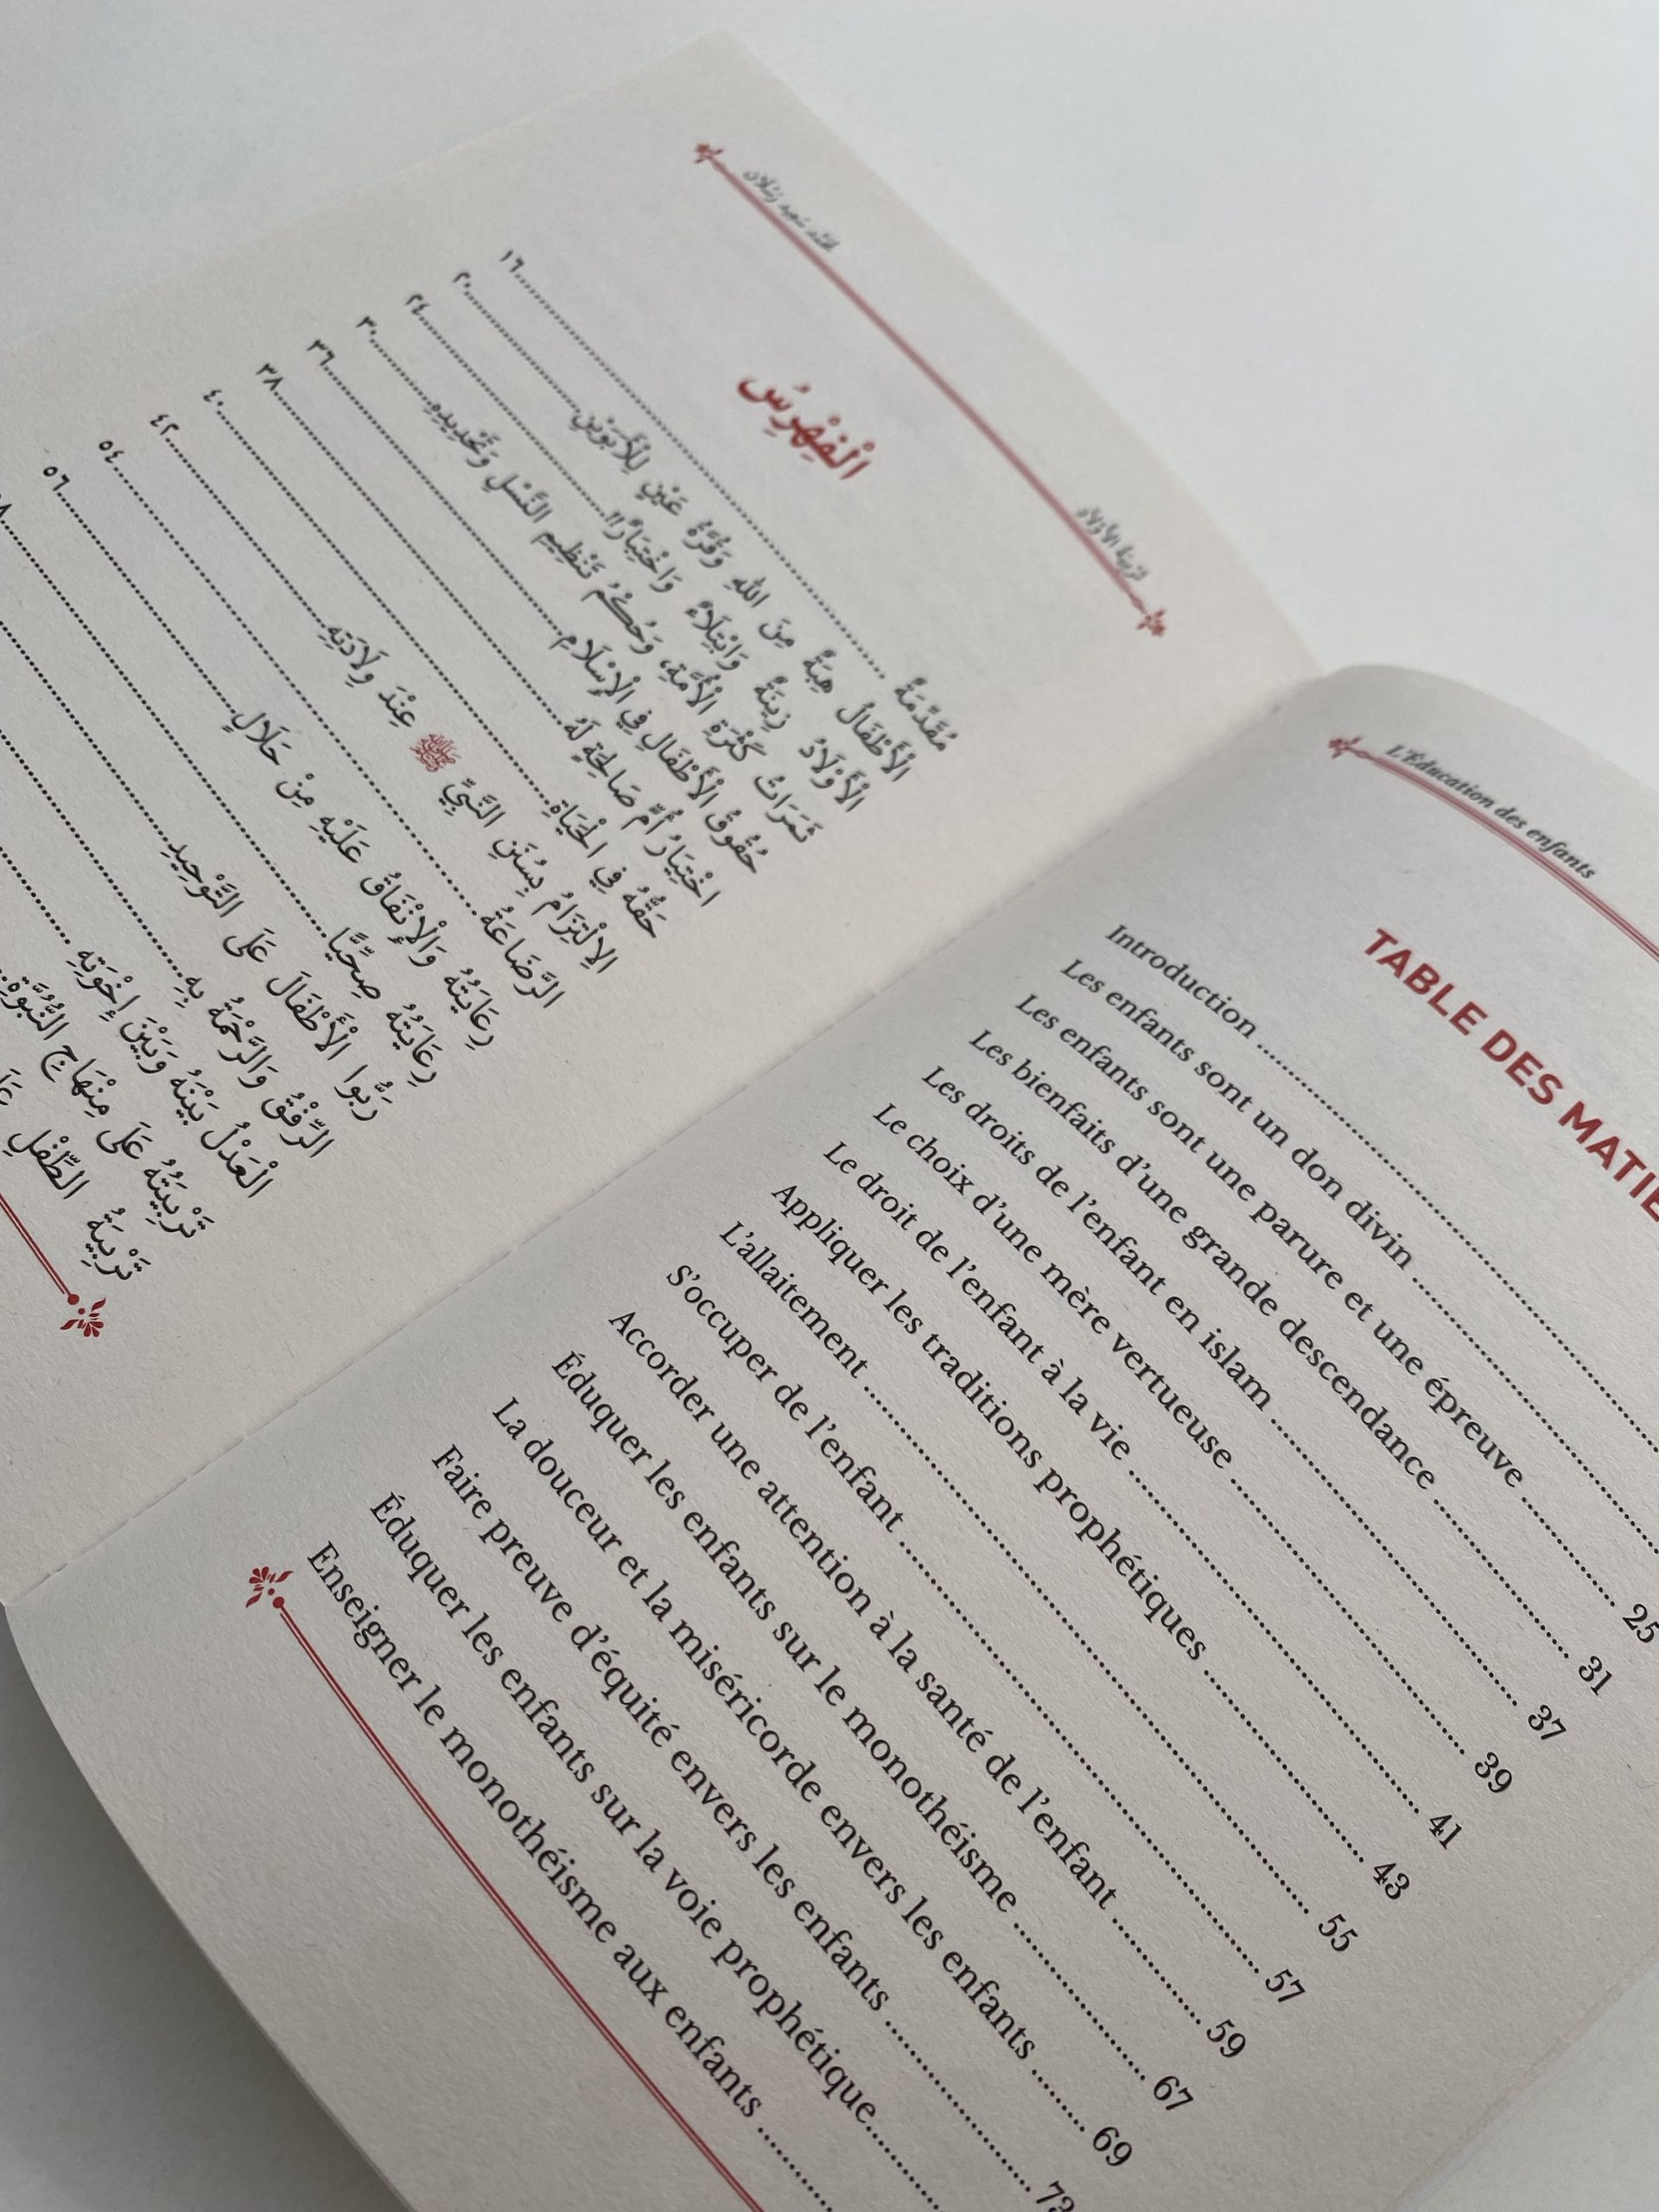 محمد سعيد رسلان
تربية الأولاد
الْفِهْرِسُ
مُقَدِّمَةٌ ................ ١٦
الْأَطْفَالُ هِبَةٌ مِنَ اللهِ وَقُرَّةُ عَيْنٍ لِلْأَبَوَيْنِ ................ ٢٠
الْأَوْلَادُ زِينَةٌ وَابْتِلَاءٌ وَاخْتِبَارٌ!! ................ ٢٤
ثَمَرَاتُ كَثْرَةِ الْأُمَّةِ، وَحُكْمُ تَنْظِيمِ النَّسْلِ وَتَحْدِيدِهِ ................ ٣٠
حُقُوقُ الْأَطْفَالِ فِي الْإِسْلَامِ ................ ٣٦
اخْتِيَارُ أُمٍّ صَالِحَةٍ لَهُ ................ ٣٨
حَقُّهُ فِي الْحَيَاةِ ................ ٤٠
الِالْتِزَامُ بِسُنَنِ النَّبِيِّ ﷺ عِنْدَ وِلَادَتِهِ ................ ٤٢
الرَّضَاعَةُ ................ ٥٤
رِعَايَتُهُ وَالْإِنْفَاقُ عَلَيْهِ مِنْ حَلَالٍ ................ ٥٦
رِعَايَتُهُ صِحِّيًّا ................
رَبُّوا الْأَطْفَالَ عَلَى التَّوْحِيدِ ................
الرِّفْقُ وَالرَّحْمَةُ بِهِ ................
الْعَدْلُ بَيْنَهُ وَبَيْنَ إِخْوَتِهِ ................
تَرْبِيَتُهُ عَلَى مِنْهَاجِ النُّبُوَّةِ
تَرْبِيَةُ الطِّفْلِ
L'Éducation des enfants
TABLE DES MATIE
Introduction ................
Les enfants sont un don divin ................
Les enfants sont une parure et une épreuve ................ 25
Les bienfaits d'une grande descendance ................ 31
Les droits de l'enfant en islam ................ 37
Le choix d'une mère vertueuse ................ 39
Le droit de l'enfant à la vie ................ 41
Appliquer les traditions prophétiques ................ 43
L'allaitement ................ 55
S'occuper de l'enfant ................ 57
Accorder une attention à la santé de l'enfant ................ 59
Éduquer les enfants sur le monothéisme ................ 67
La douceur et la miséricorde envers les enfants ................ 69
Faire preuve d'équité envers les enfants ................ 73
Éduquer les enfants sur la voie prophétique................
Enseigner le monothéisme aux enfants ................